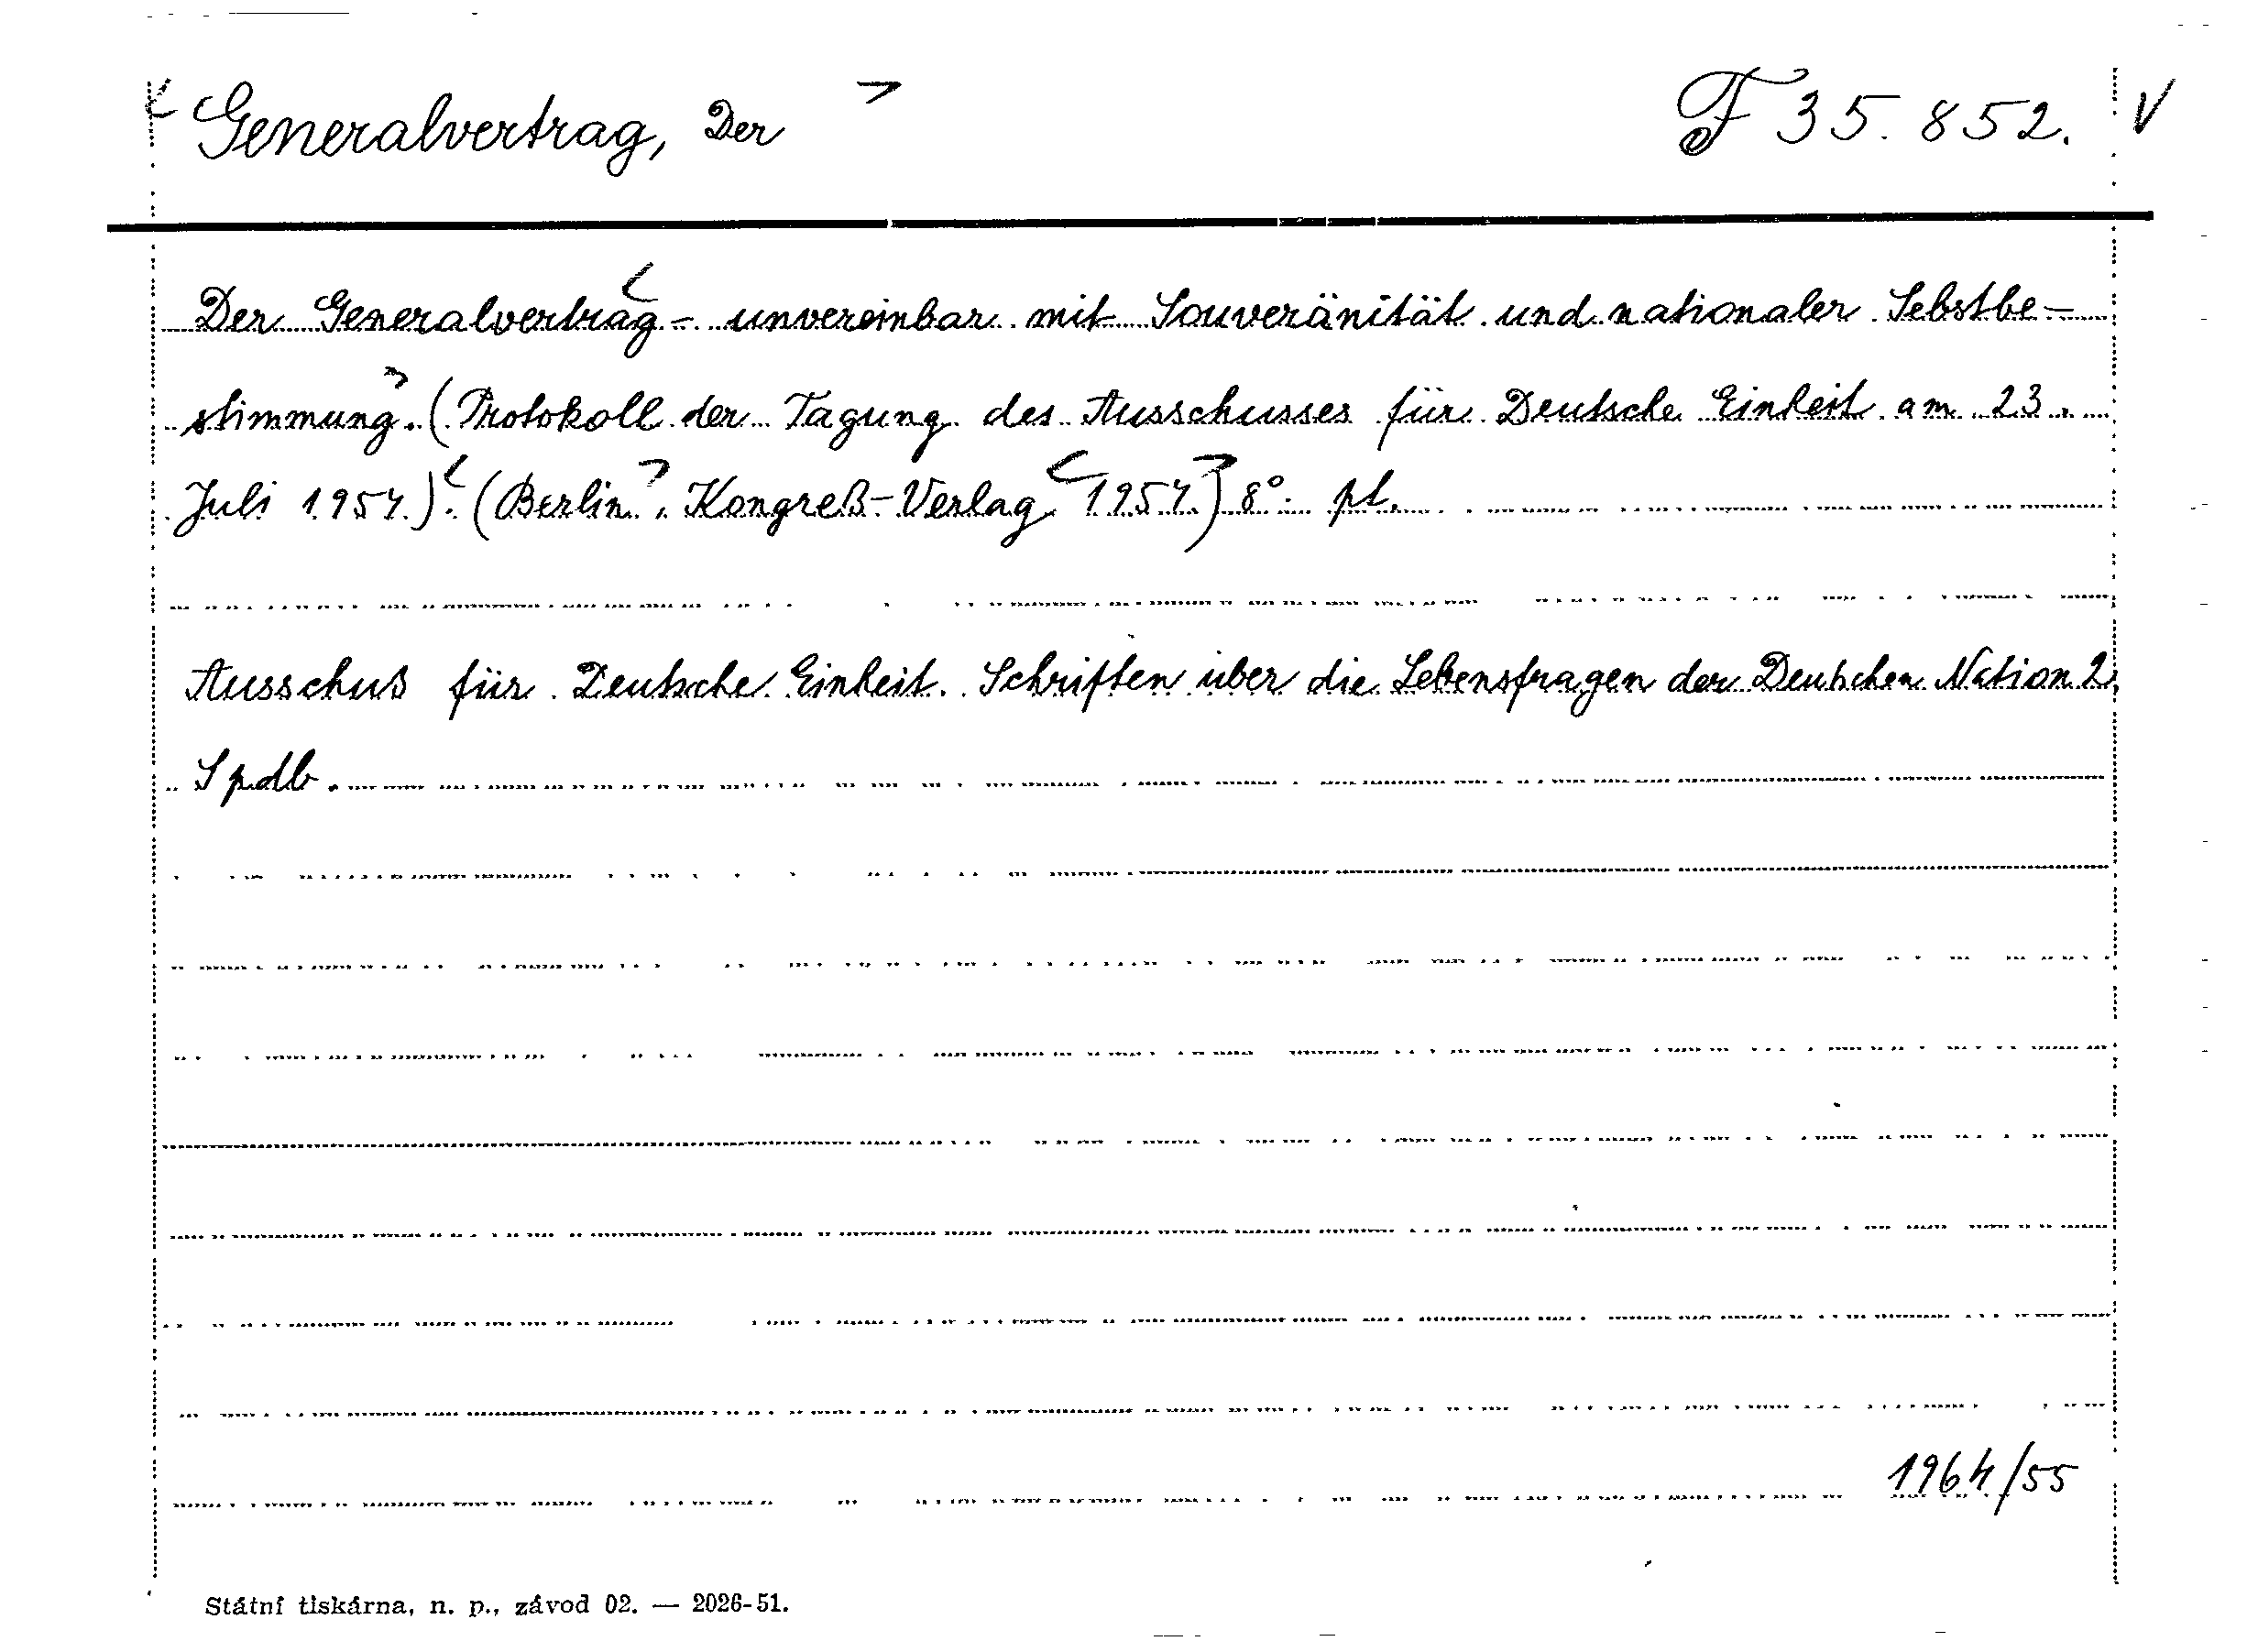 Generalvertrag, Der F 35.852. V
Der Generalvertrag - unvereinbar mit Souveränität und nationaler Sebstbe-
stimmung. (Protokoll der Tagung des Ausschusses für Deutsche Einheit am 23.
Juli 1954.). (Berlin, Kongreß-Verlag 1954.) 8°. pl.
Ausschuß für Deutsche Einheit. Schriften über die Lebensfragen der Deutschen Nation 2.
Spdb.
1964/55
Státní tiskárna, n. p., závod 02. — 2026-51.